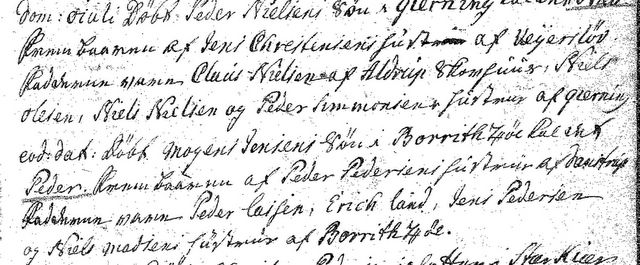 dom: Døbt Peder Nielsens Søn i Gierning
fremb aaren af Jens Christensens hustrue af Vejerslöv
Fadderne vare Claus Nielsen af Aldrup Skovhuus, Niels
olesen, Niels Nielsen og Peder Simmonsens hustrue af Gierning
eod: dat: Døbt Mogens Jensens Søn i Borrith kaldet
Peder. frembaaren af Peder Pedersens hustrue af Danstrup
Fadderne vare Peder Lassen, Erich Land, Jens Pedersen
og Niels Madsens hustrue af Borrith